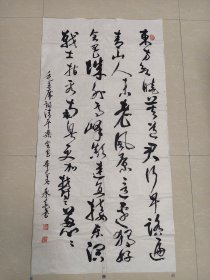 東方欲晓莫道君行早踏遍
青山人未老風景這边独好
会昌城外高峰巅連直接东溟
战士指看南粤更加欝々葱々
毛主席词清平乐会昌